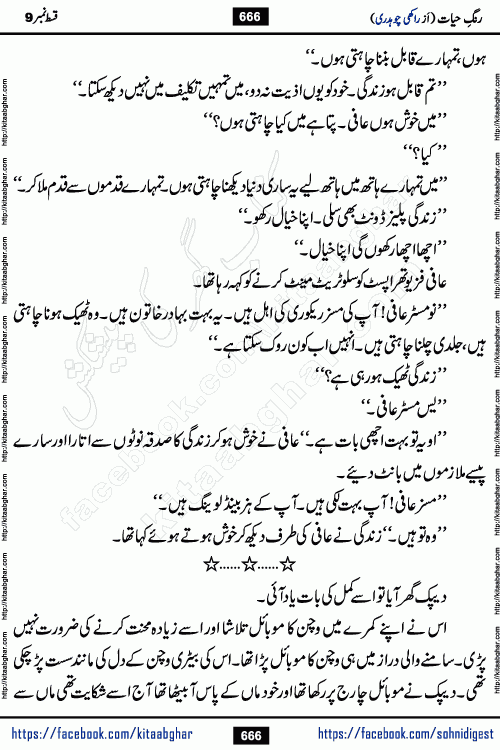 رنگِ حیات (از راکھی چوہدری) 666 قسط نمبر 9
ہوں، تمہارے قابل بننا چاہتی ہوں۔‘‘
’’تم قابل ہو زندگی۔ خود کو یوں اذیت نہ دو، میں تمہیں تکلیف میں نہیں دیکھ سکتا۔‘‘
’’میں خوش ہوں عافی۔ پتا ہے میں کیا چاہتی ہوں؟‘‘
’’کیا؟‘‘
’’میں تمہارے ہاتھ میں ہاتھ لیے یہ ساری دنیا دیکھنا چاہتی ہوں۔ تمہارے قدموں سے قدم ملا کر۔‘‘
’’زندگی پلیز ڈونٹ بھی سلی۔ اپنا خیال رکھو۔‘‘
’’اچھا اچھا رکھوں گی اپنا خیال۔‘‘
عافی فزیو تھراپسٹ کو سلو ٹریٹ مینٹ کرنے کو کہہ رہا تھا۔
’’نو مسٹر عافی! آپ کی مسز ریکوری کی اہل ہیں۔ یہ بہت بہادر خاتون ہیں۔ وہ ٹھیک ہونا چاہتی
ہیں، جلدی چلنا چاہتی ہیں۔ انہیں اب کون روک سکتا ہے۔‘‘
’’زندگی ٹھیک ہو رہی ہے؟‘‘
’’یس مسٹر عافی۔‘‘
’’او یہ تو بہت اچھی بات ہے۔‘‘ عافی نے خوش ہو کر زندگی کا صدقہ نوٹوں سے اتارا اور سارے
پیسے ملازموں میں بانٹ دیئے۔
’’مسز عافی! آپ بہت لکی ہیں۔ آپ کے ہزبینڈ لونگ ہیں۔‘‘
’’وہ تو ہیں۔‘‘ زندگی نے عافی کی طرف دیکھ کر خوش ہوتے ہوئے کہا تھا۔
☆......☆......☆
دیپک گھر آیا تو اسے کمل کی بات یاد آئی۔
اس نے اپنے کمرے میں وچن کا موبائل تلاشا اور اسے زیادہ محنت کرنے کی ضرورت نہیں
پڑی۔ سامنے والی دراز میں ہی وچن کا موبائل پڑا تھا۔ اس کی بیٹری وچن کے دل کی مانند سست پڑ چکی
تھی۔ دیپک نے موبائل چارج پر رکھا تھا اور خود ماں کے پاس آ بیٹھا تھا آج اسے شکایت تھی ماں سے
https://facebook.com/kitaabghar 666 https://facebook.com/sohnidigest
http://kitaabghar.com
کتاب گھر کی پیشکش
facebook.com/kitaabghar